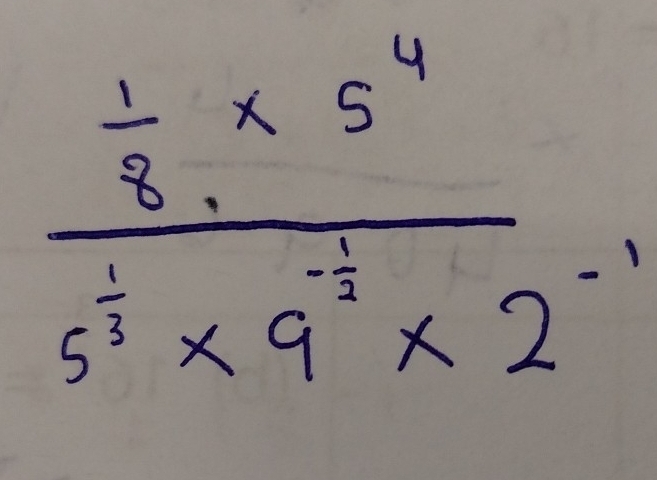 1/8 × 5^4
5^(1/3) × 9^(-1/2) × 2^(-1)